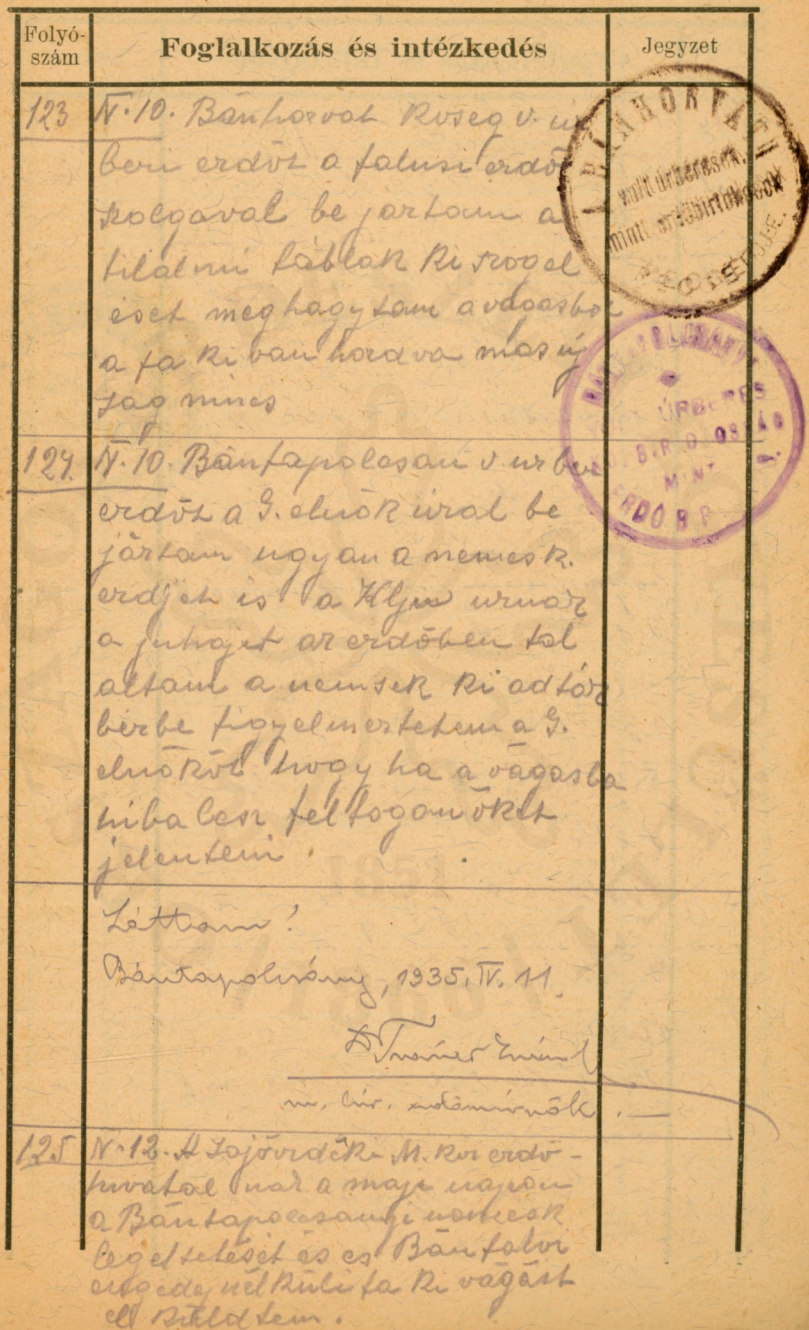 Folyó-
szám
Foglalkozás és intézkedés
Jegyzet
123 IV. 10. Bánhorvát község v. úr
beri erdőt a falusi erdő
szolgaval be jártam a
tilalmi táblak ki szogel
eset meg hagytam a vagasbol
a fa ki van hordva mas uj
sag nincs
BÁNHORVÁTH
volt úrbéresek,
mint erdőbirtokosok
ÚRBÉRES
BIRTOKOSSÁG
MINT
ERDŐB.
124. IV. 10. Bántapolcsan v ur beri
erdőt a G. elnök úral be
jártam ugyan a nemesk.
erdjet is a urnak
a juhajit az erdőben tal
altam a nemsek ki adták
bérbe figyelmeztetem a G.
elnököt hogy ha a vágasba
hiba lesz fel fogom őket
jelenteni.
1851
Láttam!
Bántapolcsány, 1935. IV. 11.
m. kir. erdőmérnök.
125 IV. 12. A Sajóvidéki M. kir erdő-
hivatal nak a maji napon
a Bántapolcsanyi nemesk
legeltetését és es Bánfalvi
engedej nélküli fa ki vágást
el küldtem.